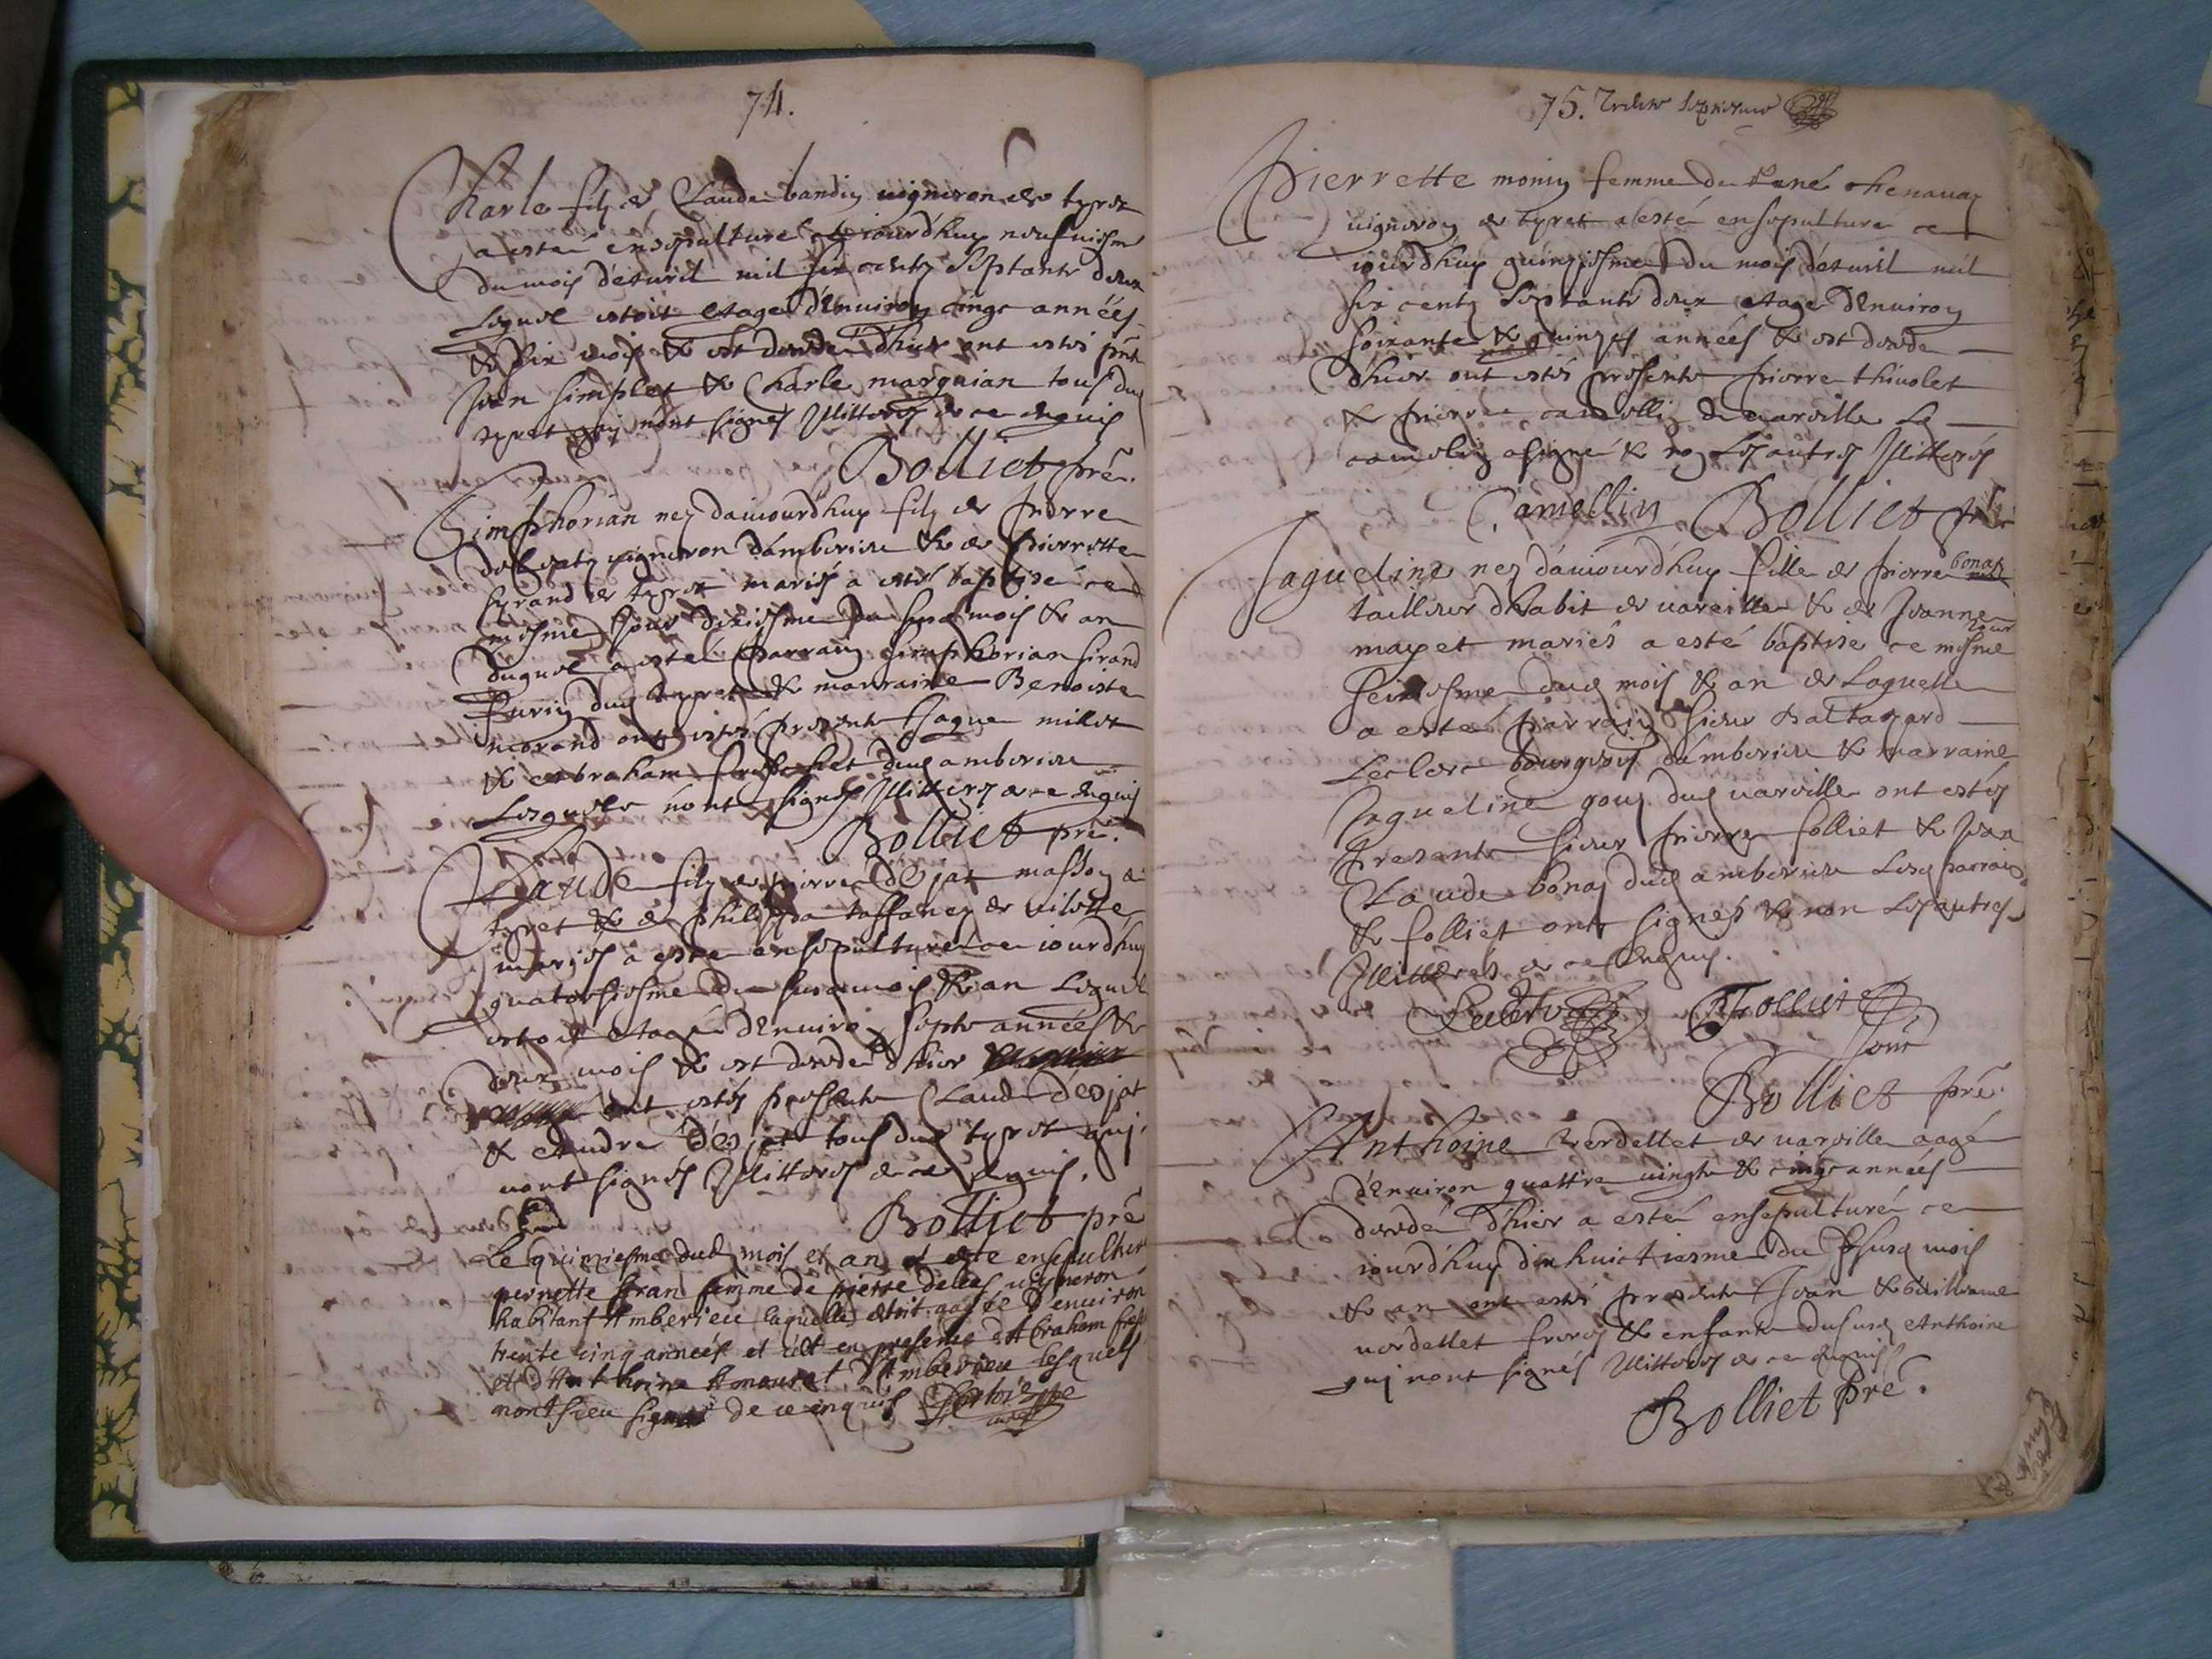 74.
Charle filz de Claude bandin uigneron de tyret
a esté ensepulturé ce iourd'huy neufuiesme
du mois d'esturil mil six centz septante deux
Lequel estoit eagé d'enuiron cinqz années
& six mois & est decedé d'hier ont estes pnts
Jean simplet & Charle marguian tous dud
tyret qui n'ont signes Illitteres de ce enquis
Bolliet pre.
Simphorian nez d'auiourd'huy filz de pierre
uigneron d'amberieu & de pierrette
sirand de tyret mariés a esté baptisé ce
mesme jour dixiesme du susd mois & an
duquel a esté parrain Simphorian sirand
dud tyret & marraine Benoiste
morand ont estes present Jaque millet
& Abraham dud amberieu
Lesquels n'ont signés Illitteres de ce enquis
Bolliet pre.
Claude filz de pierre desjat masson a
tyret & de philippa taffaney de uilette
mariés a esté ensepulturé ce iourd'huy
quatorsiesme du susd mois & an Lequel
estoit eagé d'enuiron septs années &
deux mois & est decedé d'hier
ont estés presents Claude desjat
& Andre desjat tous dud tyret qui
n'ont signés Illitteres de ce enquis.
Bolliet pre
Le quinziesme dud mois et an a este ensepulture
pernette femme de pierre uigneron
habitant Amberieu laquelle estoit aagée d'enuiron
trente cinq années et c'est en presence d'Abraham
et d'Anthoine d'Amberieu Lesquels
n'ont sceu signer de ce enquis
75.
Pierrette monin femme de René chenauaz
uigneron de tyret a esté ensepulturé ce
iourd'huy quinziesme du mois d'esturil mil
six centz septante deux eagee d'enuiron
soixante & quinzes années & est decede
d'hier ont estes presents pierre thiuolet
& pierre camellin de uareille Le
camelin a signé & non Les autres Illitterés
Camellin Bolliet pre
Jaqueline nez d'auiourd'huy fille de pierre bonaz
tailleur d'habit de uareille & de Jeanne
mayet mariés a esté baptise ce mesme jour
seiziesme dud mois & an de Laquelle
a esté parrain sieur baltazard
Leclerc bourgeois d'amberieu & marraine
Jaqueline gouz dud uareille ont estés
presents sieur pierre folliet & Jean
Claude bonaz dud amberieu Lesd parrain
& folliet ont signés & non Les autres
Illitterés de ce enquis.
Leclerc Folliet
Bolliet pre.
Anthoine uerdellet de uareille aagé
d'enuiron quattre uingts & cinqz années
decedé d'hier a esté ensepulturé ce
iourd'huy dixhuictiesme du susd mois
& an ont estés presents Jean & Guillaume
uerdellet freres & enfants dususd Anthoine
qui n'ont signés Illitteres de ce enquis
Bolliet pre.